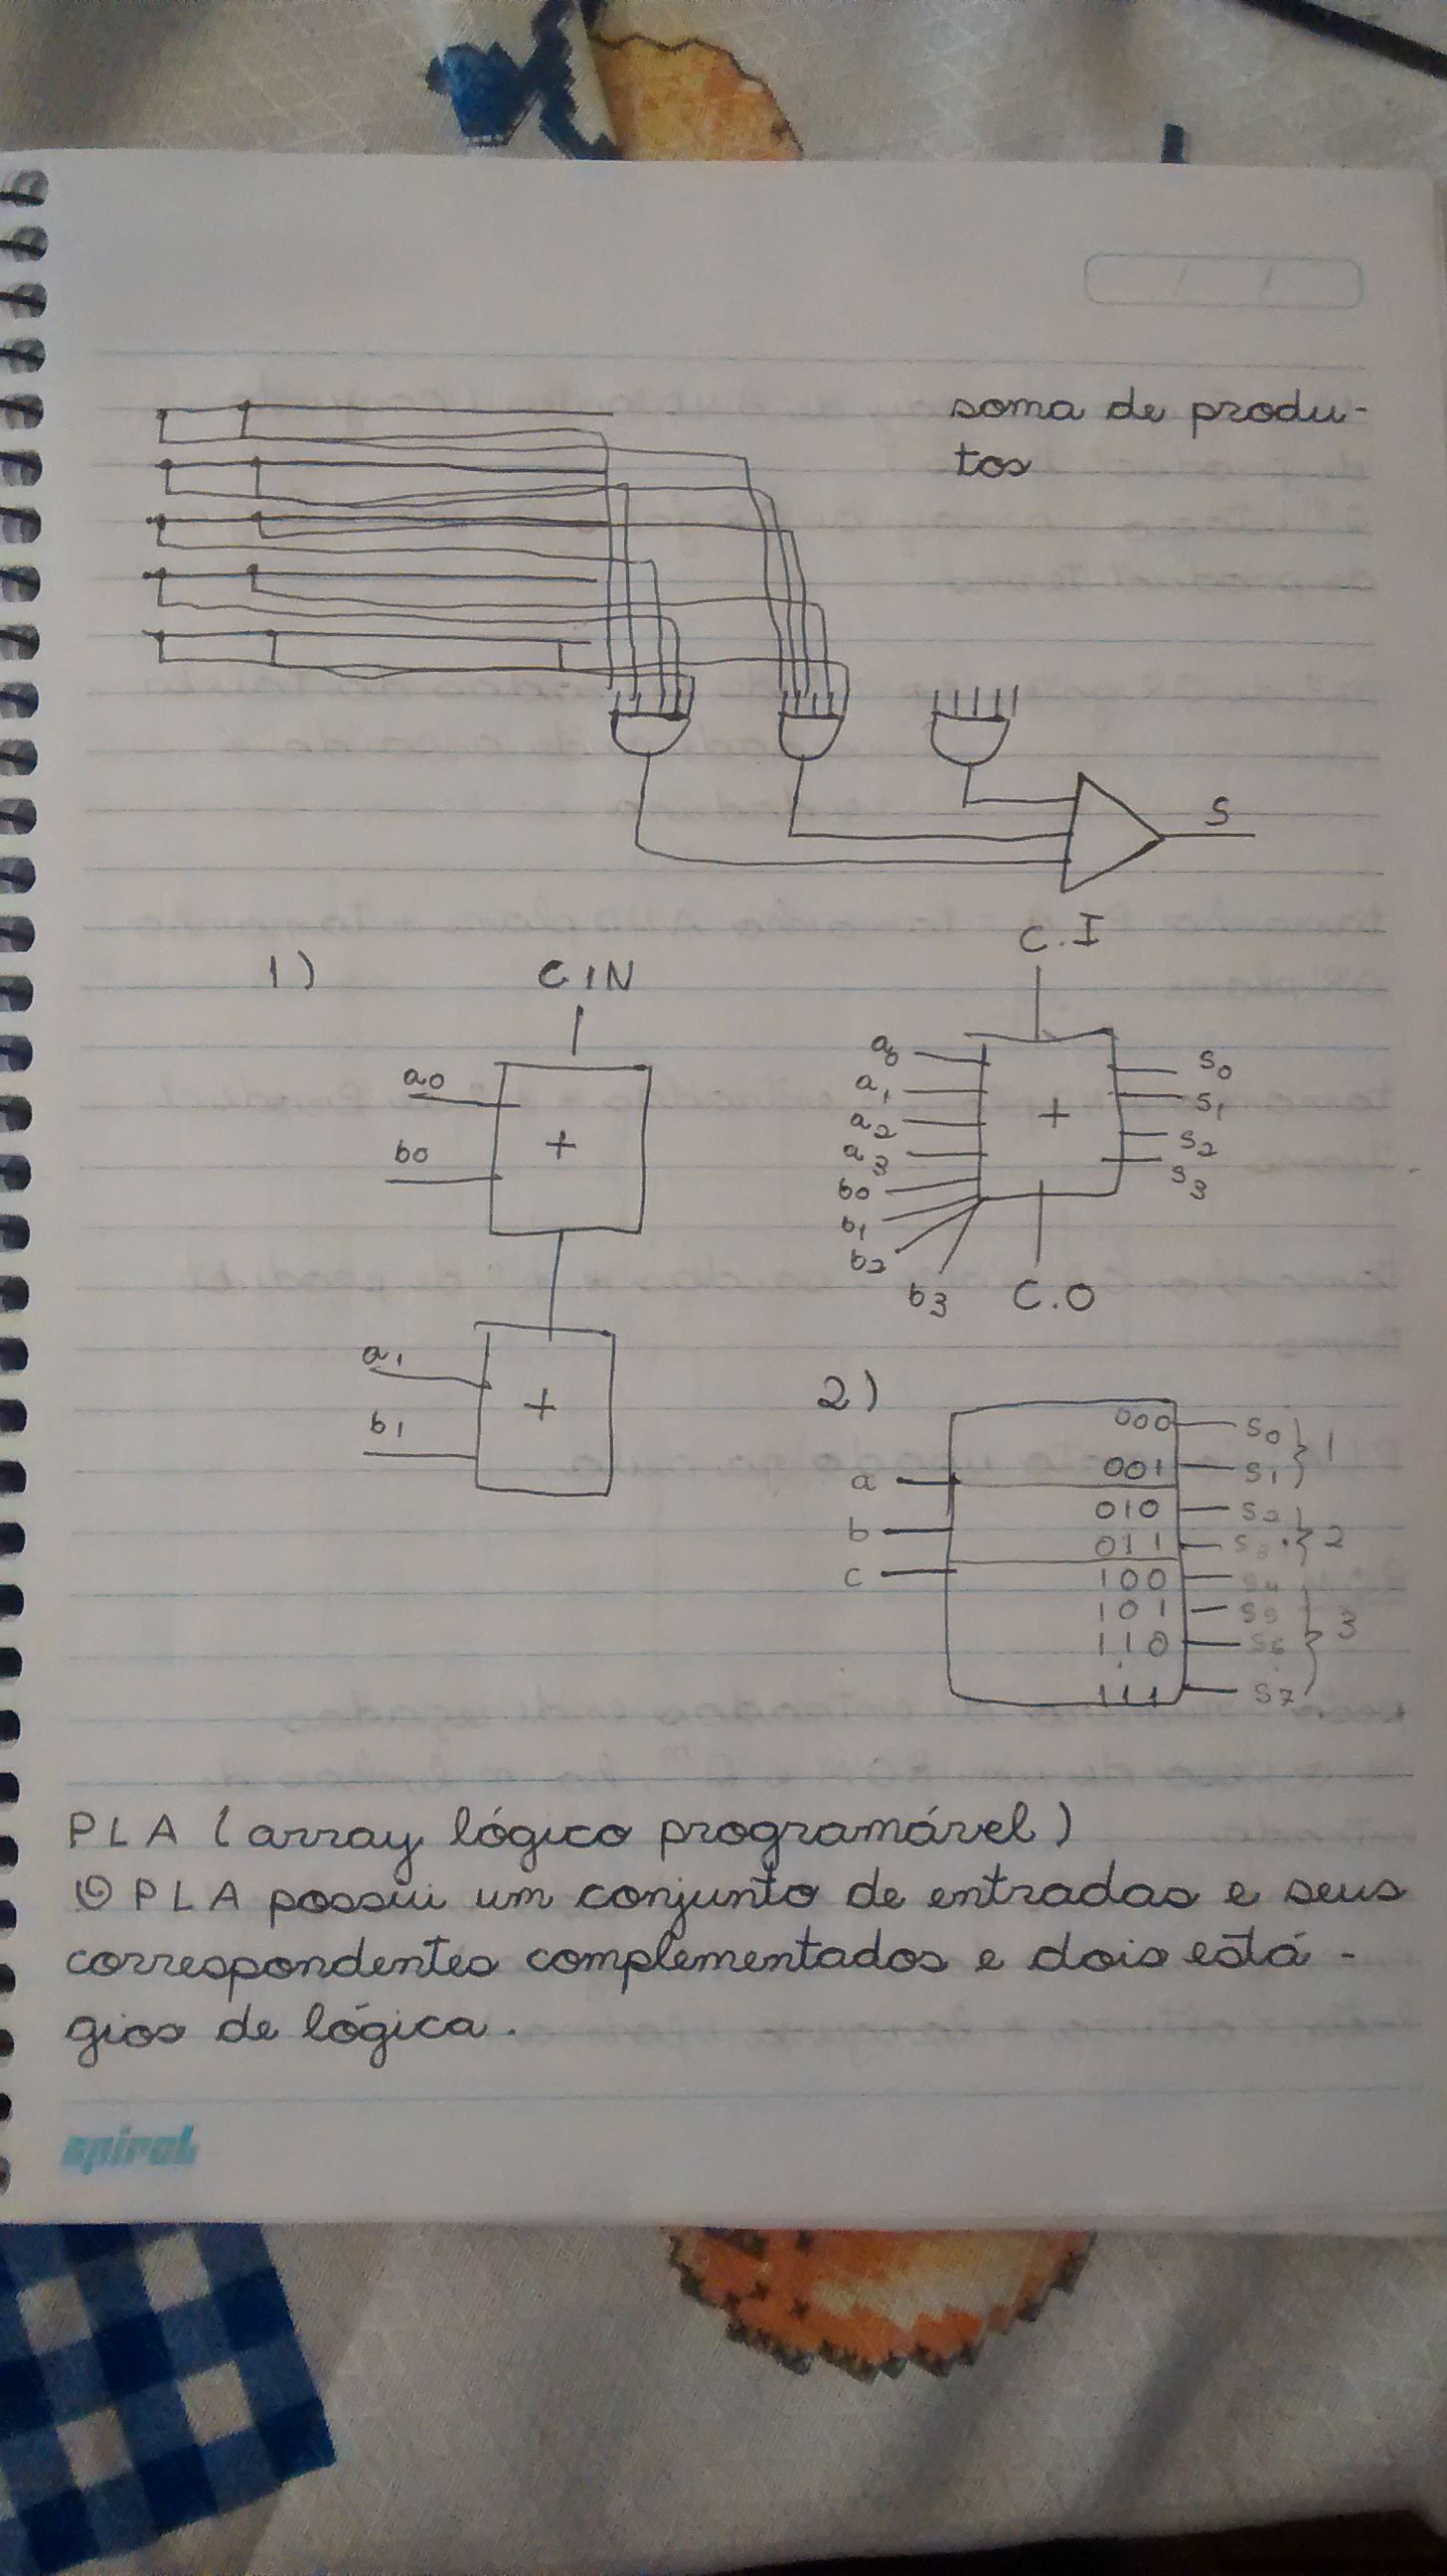 soma de produ-
tos
S
1)
CIN
a0
b0
a1
b1
C.I
a0
a1
a2
a3
b0
b1
b2
b3
+
S0
S1
S2
S3
C.O
+
+
2)
a
b
c
000 S0
001 S1 } 1
010 S2
011 S3 } 2
100 S4
101 S5
110 S6 } 3
111 S7
PLA (array lógico programável)
O PLA possui um conjunto de entradas e seus
correspondentes complementados e dois está-
gios de lógica.
spiral